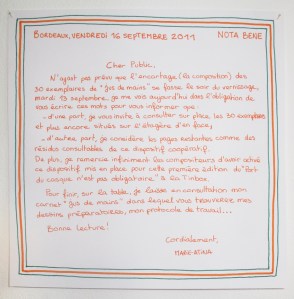 BORDEAUX, VENDREDI 16 SEPTEMBRE 2011 NOTA BENE
Cher Public,
N'ayant pas prévu que l'encartage (la composition) des
30 exemplaires de "Jus de mains" se fasse le soir du vernissage,
mardi 13 septembre, je me vois aujourd'hui dans l'obligation de
vous écrire ces mots pour vous informer que :
- d'une part, je vous invite à consulter sur place, les 30 exemplaires
et plus encore, situés sur l'étagère d'en face,
- d'autre part, de considérer les piques existantes comme des
résidus consultables de ce dispositif coopératif.
De plus, je remercie infiniment les compositeurs d'avoir activé
ce dispositif mis en place pour cette première édition du "Port
du casque n'est pas obligatoire." à la Tinbox.
Pour finir, sur la table, je laisse en consultation mon
carnet "Jus de mains" dans lequel vous trouverez mes
dessins préparatoires, mon protocole de travail...
Bonne lecture !
Cordialement,